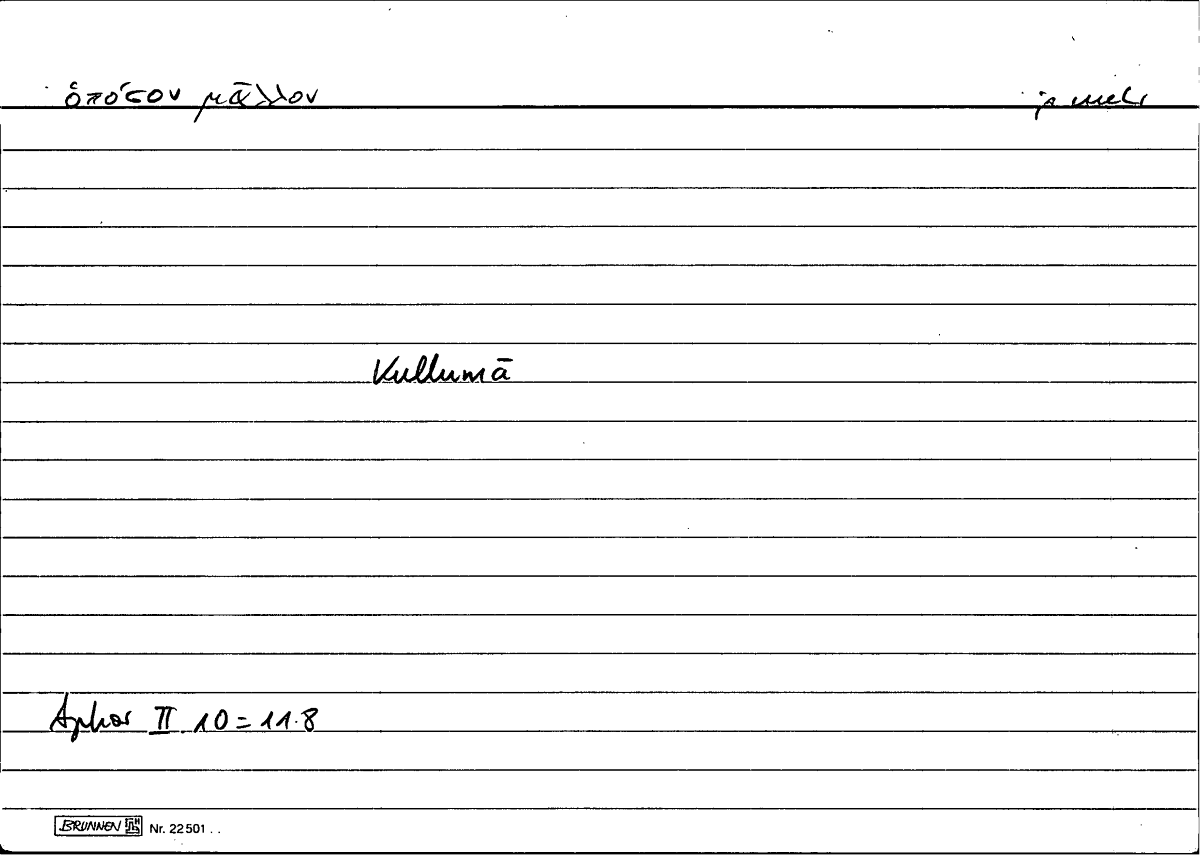 ὁπόσον μᾶλλον je mehr
Kullumā
Aphor II 10 = 11.8
BRUNNEN Nr. 22501 . .